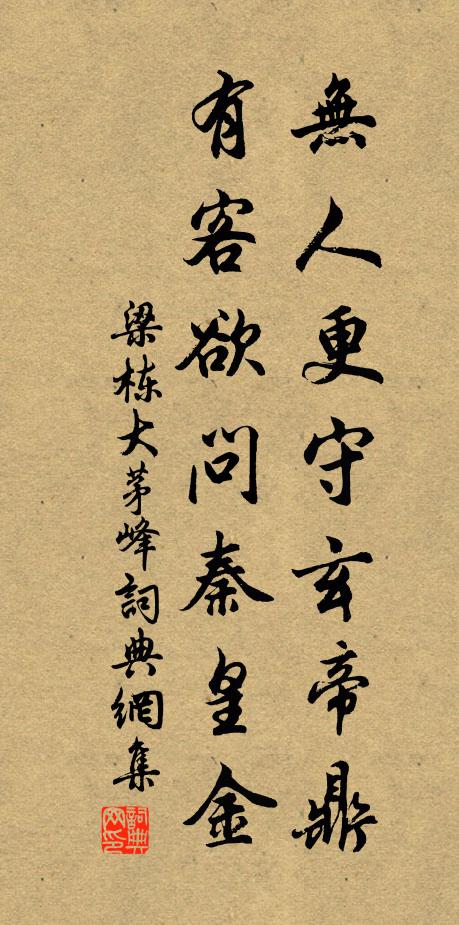 無人更守玄帝鼎
有客欲問秦皇金
梁栋大茅峰詞典網集
詞典網印